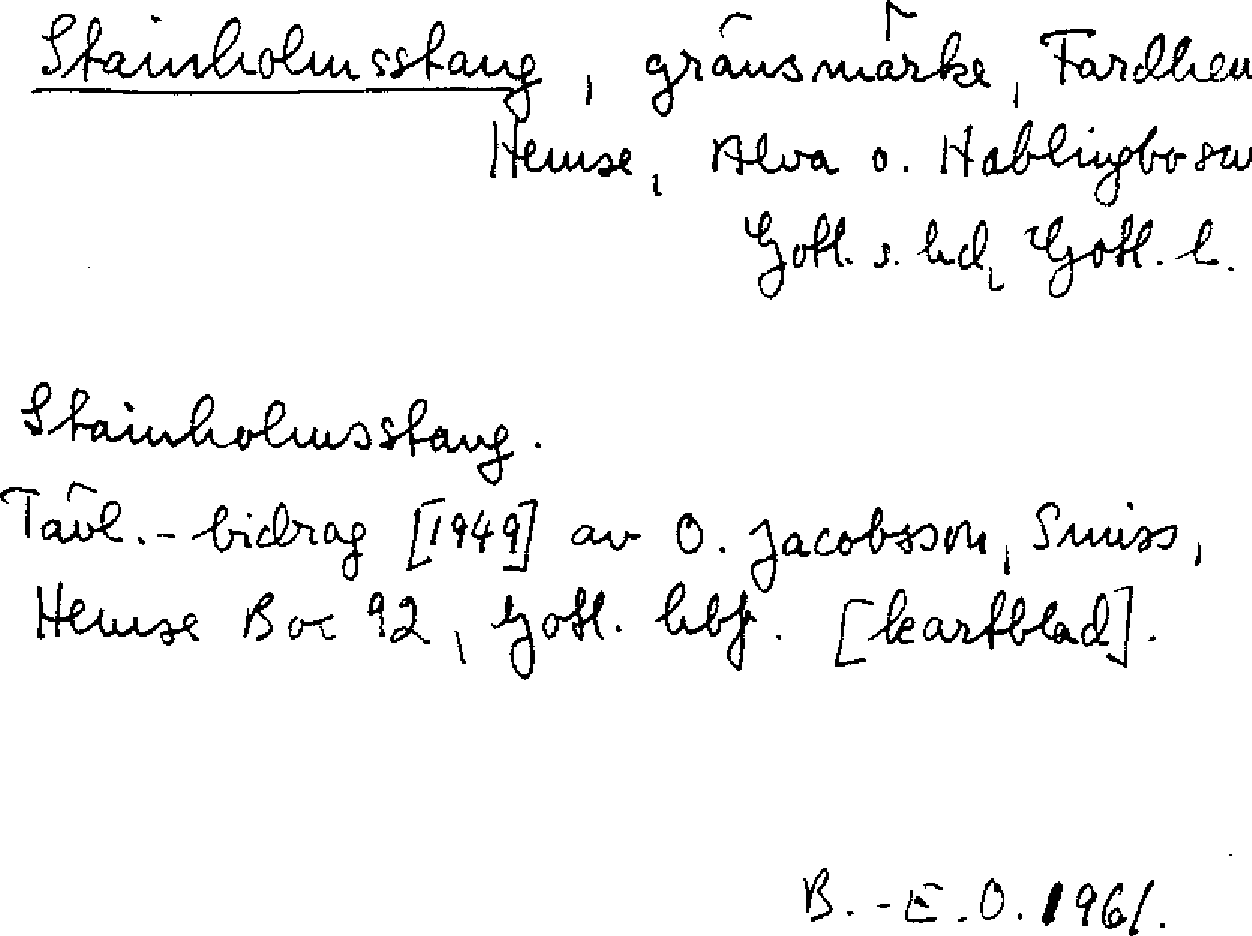 Stainholmsstang, gränsmärke, Fardhem
Hemse, Alva o. Hablingbo snr
Gotl. s. hd, Gotl. l.
Stainholmsstang.
Tävl.-bidrag [1949] av O. Jacobsson, Smiss,
Hemse Box 92, Gotl. hbf. [kartblad].
B.-E.O. 1961.